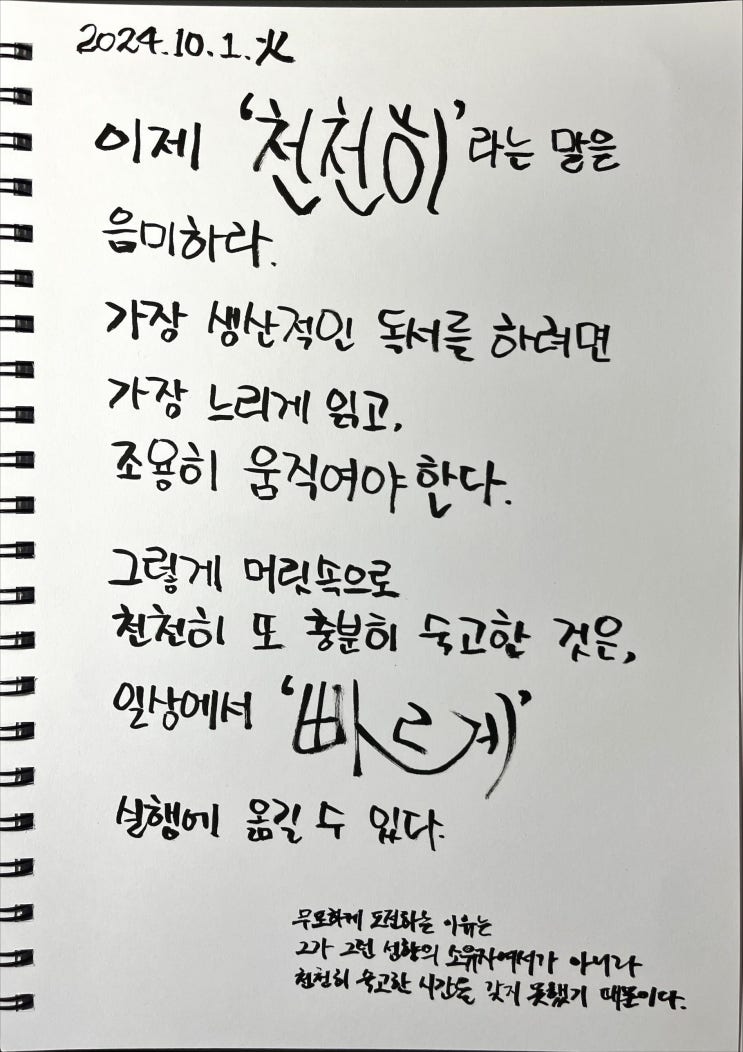 2024.10.1.火
이제 '천천히'라는 말을
음미하라.
가장 생산적인 독서를 하려면
가장 느리게 읽고,
조용히 움직여야 한다.
그렇게 머릿속으로
천천히 또 충분히 숙고한 것은,
일상에서 '빠르게'
실행에 옮길 수 있다.
무모하게 도전하는 이유는
그가 그런 성향의 소유자여서가 아니라
천천히 숙고한 시간을 갖지 못했기 때문이다.